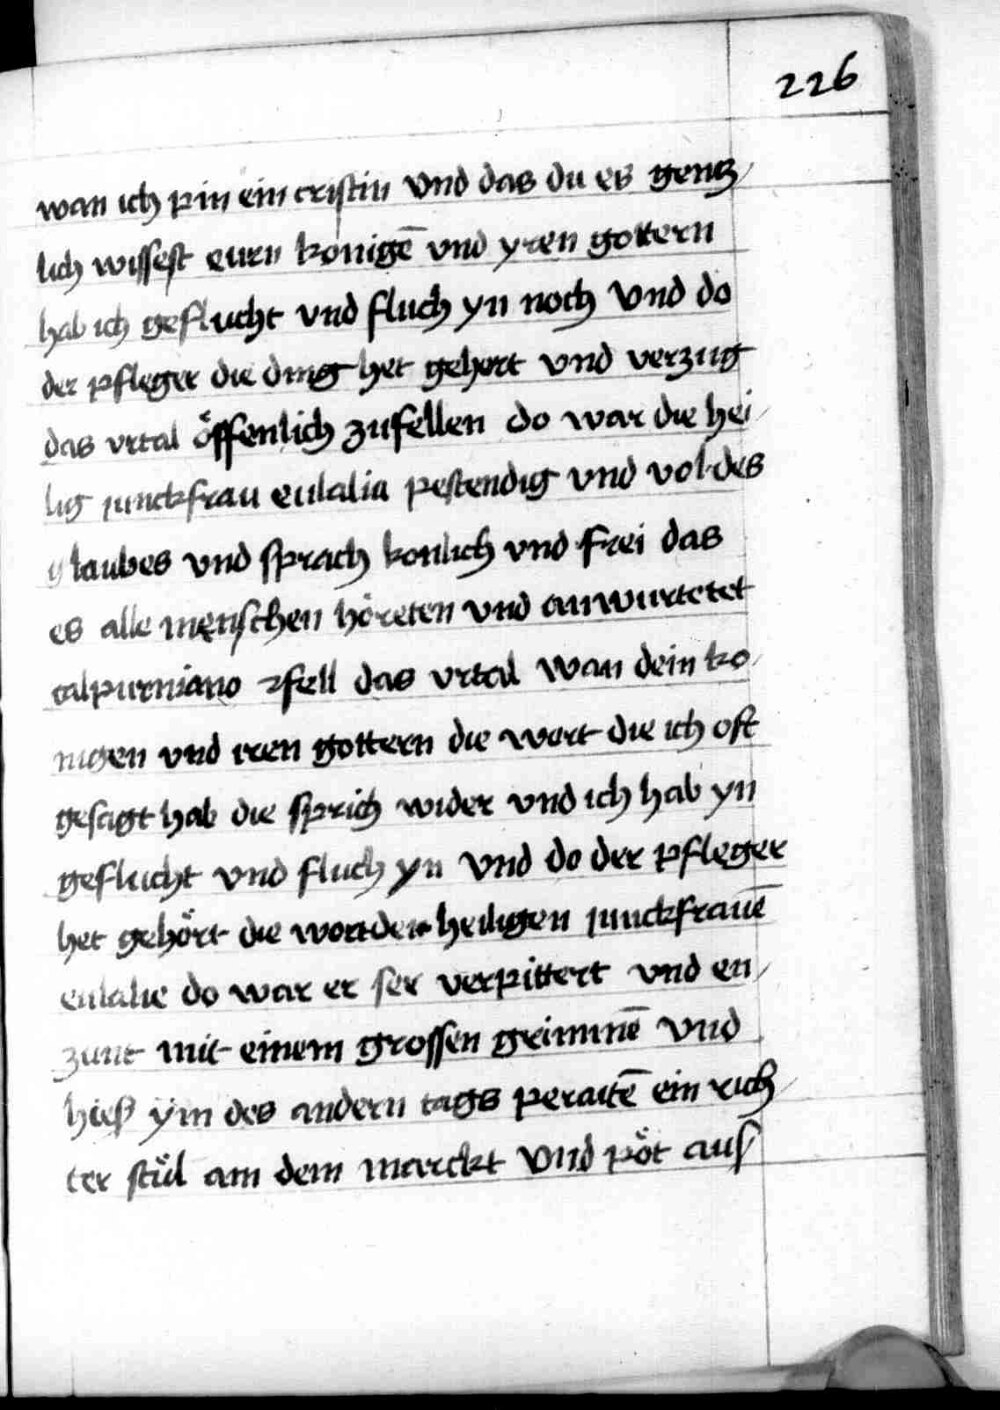 226
wan ich pin ein cristin vnd das du es gentz/
lich wissest eurn konigē vnd yren gottern
hab ich geflucht vnd fluch yn noch vnd do
der pfleger die ding het gehort vnd verzug
das vrtal öffenlich zufellen do war die hei/
lig junckfrau eulalia pestendig vnd vol des
glaubes vnd sprach konlich vnd frei das
es alle menschen höreten vnd anwurtetet
calpurniano fell das vrtal wan dein ko/
nigen vnd iren gottern die wort die ich oft
gesagt hab die sprich wider vnd ich hab yn
geflucht vnd fluch yn vnd do der pfleger
het gehört die wort der heiligen junckfrauē
eulalie do war er ser verpittert vnd en/
zunt mit einem grossen grimmē vnd
hieß ÿm des andern tags peraitē ein rich/
ter stül am dem marckt vnd pöt aus